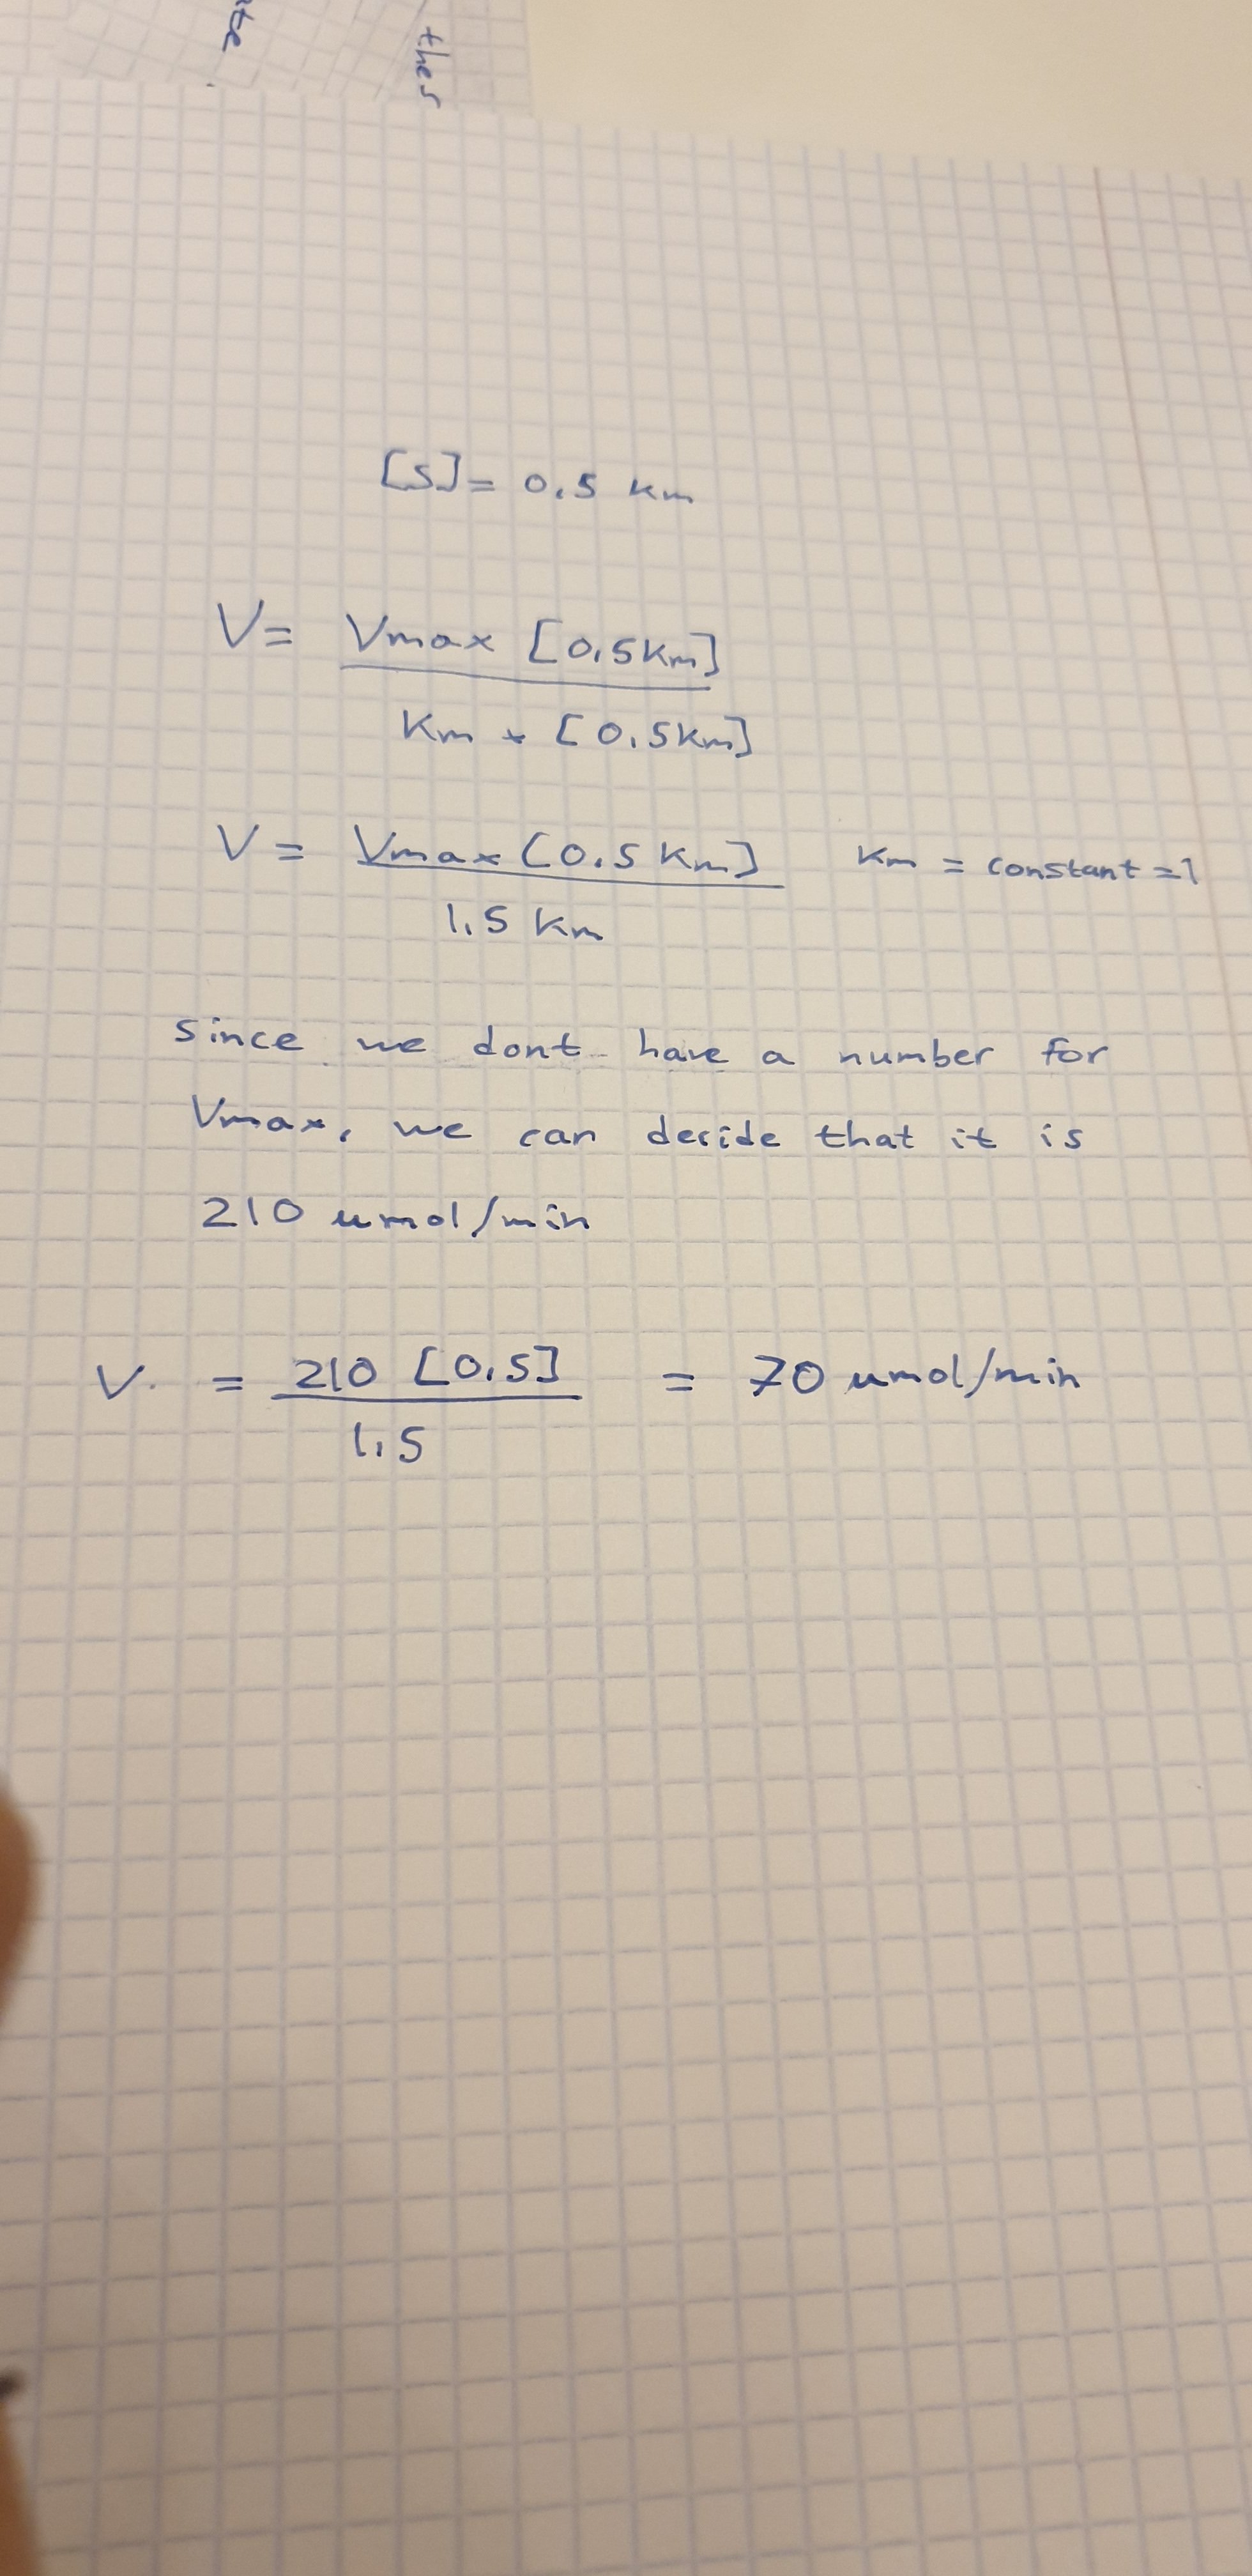 thes
[S]= 0.5 Km
V= Vmax [0.5Km]
Km + [0.5Km]
V= Vmax [0.5 Km] Km = constant =1
1.5 Km
Since we dont have a number for
Vmax, we can decide that it is
210 umol/min
V. = 210 [0.5] = 70 umol/min
1.5